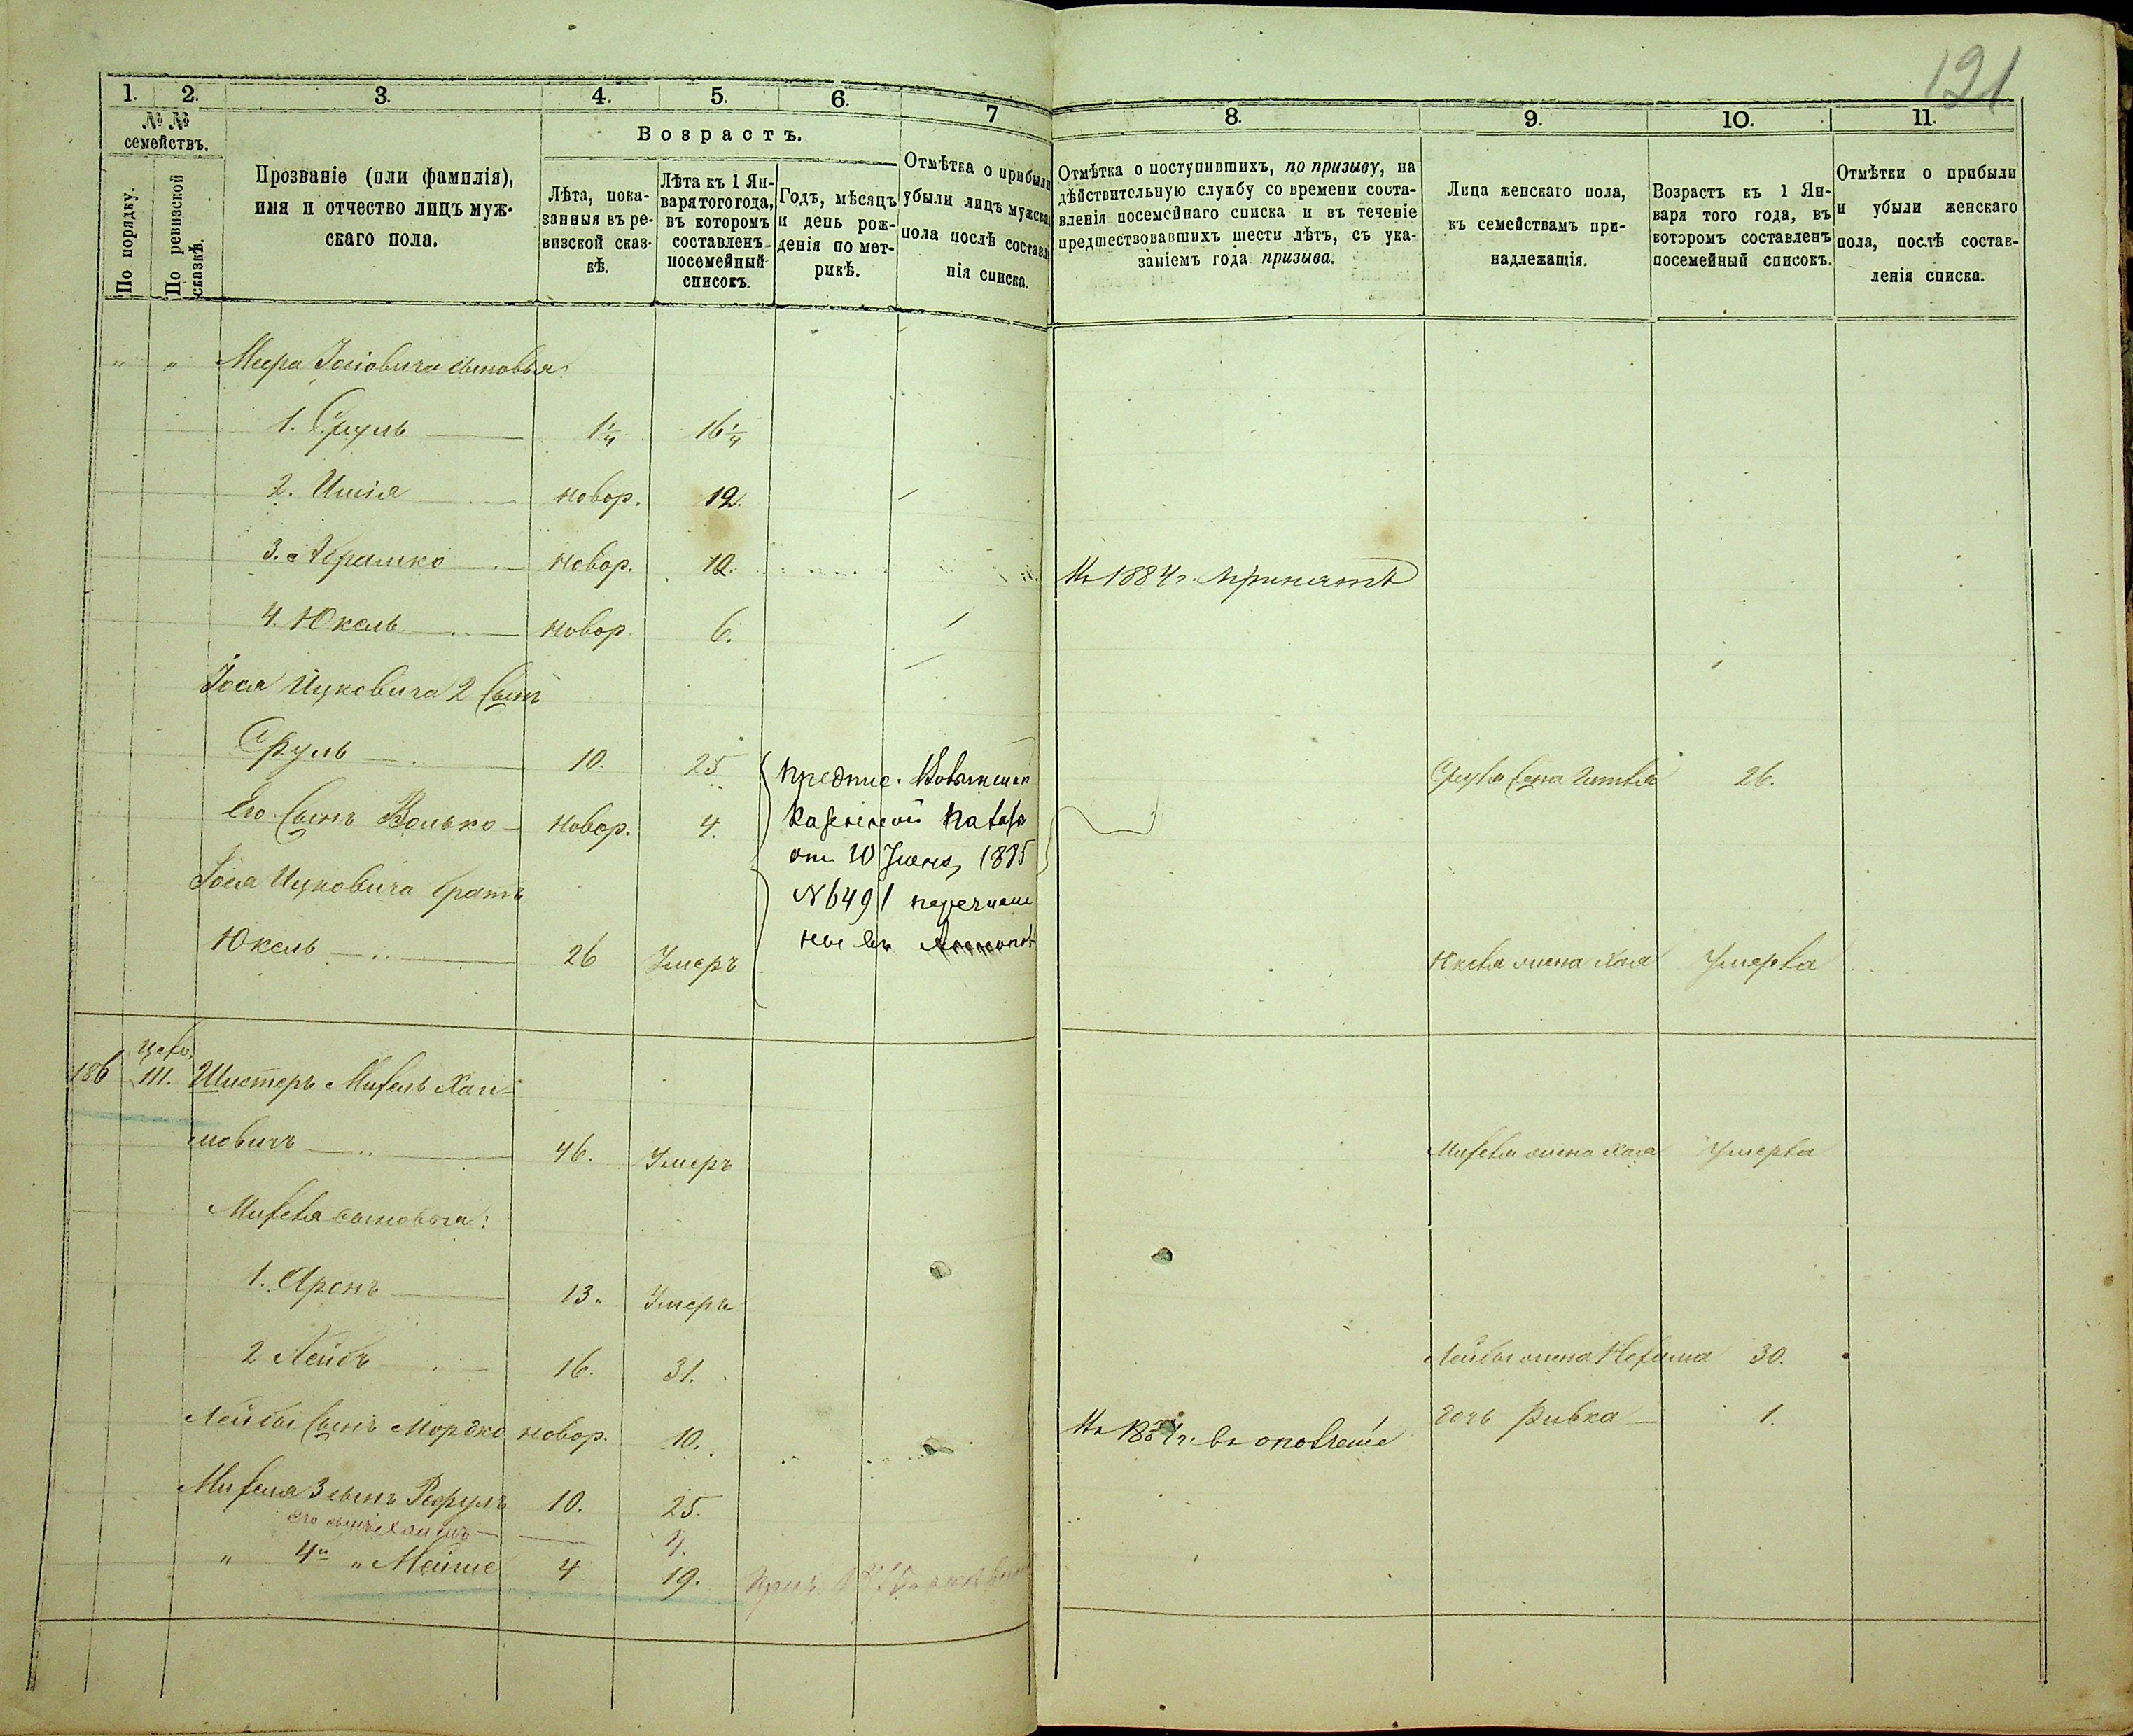 121
1. 2. 3. 4. 5. 6. 7
8. 9. 10. 11.
№ № семействъ.
По порядку.
По ревизской сказкѣ.
Прозваніе (или фамилія),
имя и отчество лицъ муж-
скаго пола.
Возрастъ.
Лѣта, пока-
занныя въ ре-
визской сказ-
кѣ.
Лѣта къ 1 Ян-
варя того года,
въ которомъ
составленъ
посемейный
списокъ.
Годъ, мѣсяцъ
и день рож-
денія по мет-
рикѣ.
Отмѣтка о прибыли
убыли лицъ мужска
пола послѣ составл
нія списка.
Отмѣтка о поступившихъ, по призыву, на
дѣйствительную службу со времени соста-
вленія посемейнаго списка и въ теченіе
предшествовавшихъ шести лѣтъ, съ ука-
заніемъ года призыва.
Лица женскаго пола,
къ семействамъ при-
надлежащія.
Возрастъ къ 1 Ян-
варя того года, въ
которомъ составленъ
посемейный списокъ.
Отмѣтки о прибыли
и убыли женскаго
пола, послѣ состав-
ленія списка.
" " Меера Іосіовича сыновья:
1. Сруль 1¼ 16¼
2. Ишія новор. 12.
3. Абрашко новор. 12. Въ 1884 г. принятъ
4. Юкель новор. 6.
Іося Ицковича 2 сынъ
Сруль 10. 25 Сруля жена 26.
Его сынъ Волько новор. 4.
Предпис. Ковенской
Казенной Палаты
от 10 Іюня 1885
№ 6491 перечисле
ны въ
Іося Ицковича братъ
Юкель 26 Умеръ Юкеля жена Хая Умерла
186 111. Шустеръ Михель Хаи-
мовичъ 46. Умеръ Михеля жена Хая Умерла
Михеля сыновья:
1. Аронъ 13. Умеръ
2 Лейбъ 16. 31. Лейбы жена Нехама 30.
Лейбы сынъ Мордко новор. 10. Въ 1884 г. въ ополченіе дочь Ривка 1.
Михеля 3 сынъ Рефулъ 10. 25.
его сынъ Хаимъ 4.
" 4й " Мейше 4 19.